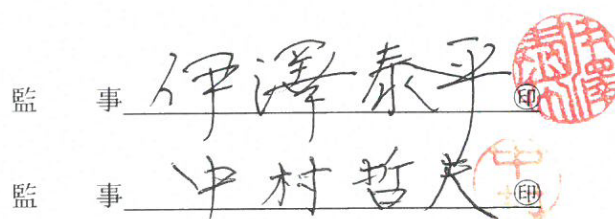 監事 伊澤泰平 ㊞
監事 中村哲夫 ㊞